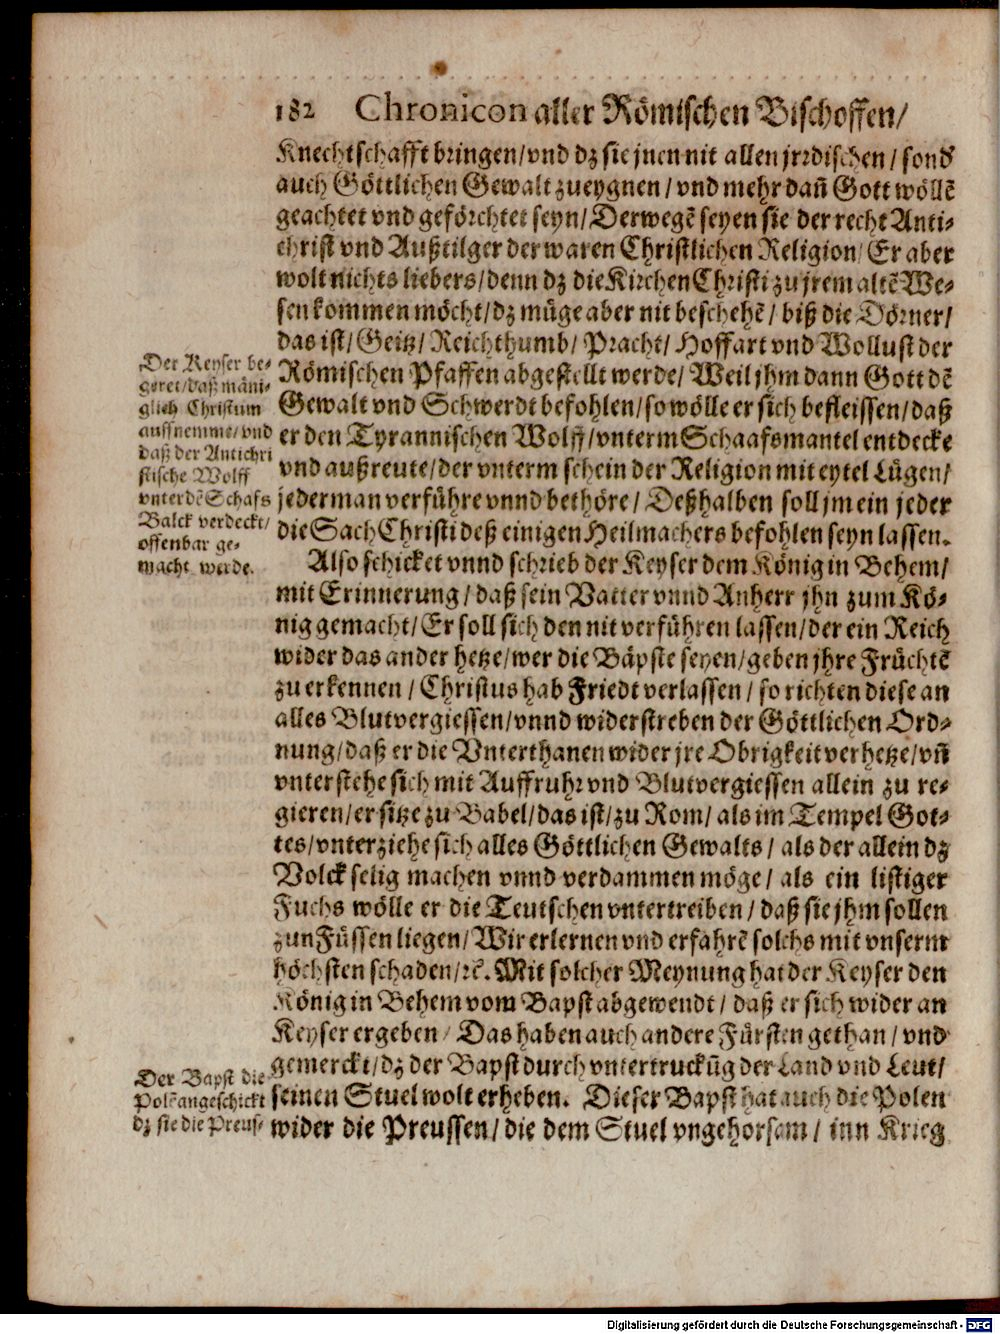 182 Chronicon aller Römischen Bischoffen/
Knechtschafft bringen/vnd dz sie jnen nit allen jrrdischen/ sond'
auch Göttlichen Gewalt zueygnen/ vnd mehr dañ Gott wöllē
geachtet vnd geförchtet seyn/ Derwegē seyen sie der recht Anti-
christ vnd Außtilger der waren Christlichen Religion/ Er aber
wolt nichts liebers/denn dz die Kirchen Christi zu jrem altē We-
sen kommen möcht/dz müge aber nit beschehē/ biß die Dörner/
das ist/ Geitz/ Reichthumb/ Pracht/ Hoffart vnd Wollust der
Römischen Pfaffen abgestellt werde/ Weil jhm dann Gott dē
Gewalt vnd Schwerdt befohlen/so wölle er sich befleissen/daß
er den Tyrannischen Wolff/vnterm Schaafsmantel entdecke
vnd außreute/der vnterm schein der Religion mit eytel Lügen/
jederman verführe vnnd bethöre/ Deßhalben soll jm ein jeder
die Sach Christi deß einigen Heilmachers befohlen seyn lassen.
Der Keyser be-
geret/daß mäni-
glich Christum
auffnemme/vnd
daß der Antichri
stische Wolff
vnter dē Schafs
Balck verdeckt/
offenbar ge-
macht werde.
Also schicket vnnd schrieb der Keyser dem König in Behem/
mit Erinnerung/ daß sein Vatter vnnd Anherr jhn zum Kö-
nig gemacht/ Er soll sich den nit verführen lassen/der ein Reich
wider das ander hetze/wer die Bäpste seyen/geben jhre Früchtē
zu erkennen/ Christus hab Friedt verlassen/ so richten diese an
alles Blutvergiessen/vnnd widerstreben der Göttlichen Ord-
nung/daß er die Vnterthanen wider jre Obrigkeit verhetze/vñ
vnterstehe sich mit Auffruhr vnd Blutvergiessen allein zu re-
gieren/er sitze zu Babel/das ist/zu Rom/ als im Tempel Got-
tes/vnterziehe sich alles Göttlichen Gewalts/ als der allein dz
Volck selig machen vnnd verdammen möge/ als ein listiger
Fuchs wölle er die Teutschen vntertreiben/ daß sie jhm sollen
zun Füssen liegen/ Wir erlernen vnd erfahrē solchs mit vnserm
höchsten schaden/ꝛc. Mit solcher Meynung hat der Keyser den
König in Behem vom Bapst abgewendt/ daß er sich wider an
Keyser ergeben/ Das haben auch andere Fürsten gethan/ vnd
gemerckt/dz der Bapst durch vntertruckūg der Land vnd Leut/
seinen Stuel wolt erheben. Dieser Bapst hat auch die Polen
wider die Preussen/die dem Stuel vngehorsam/ inn Krieg
Der Bapst die
Polē angeschickt
dz sie die Preus-
Digitalisierung gefördert durch die Deutsche Forschungsgemeinschaft - DFG